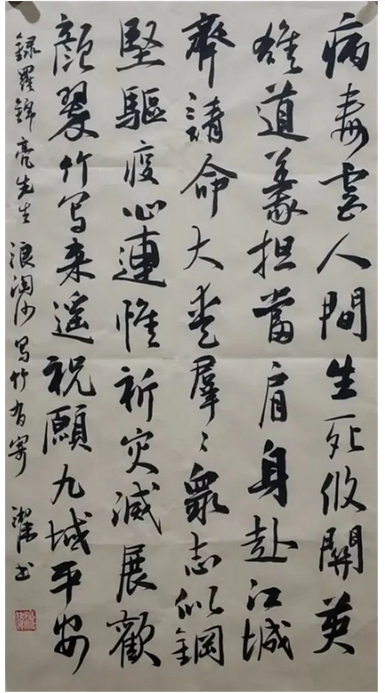 病毒虐人間生死攸關英
雄道義担當肩身赴江城
齊請命大愛羣〻衆志似鋼
堅驅疫心連惟祈灾減展歡
顔翠竹写来遥祝願九域平安
録羅錦亮先生浪淘沙写竹有寄 书